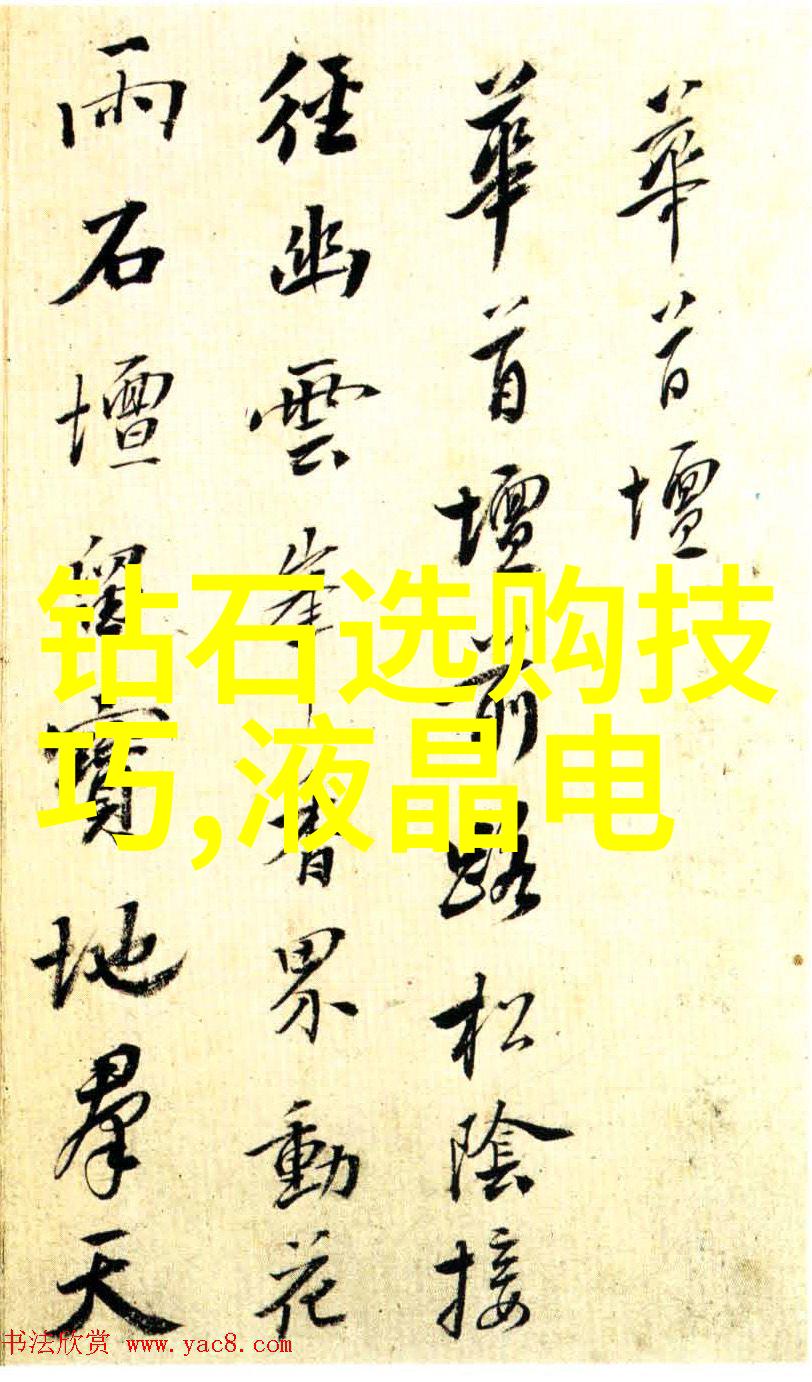 華首壇
華首壇前路松陰接
徑幽雲峯香界動花
雨石壇留寶地羣天
钻石选购技
巧,液晶电
书法欣赏 www.yac8.com